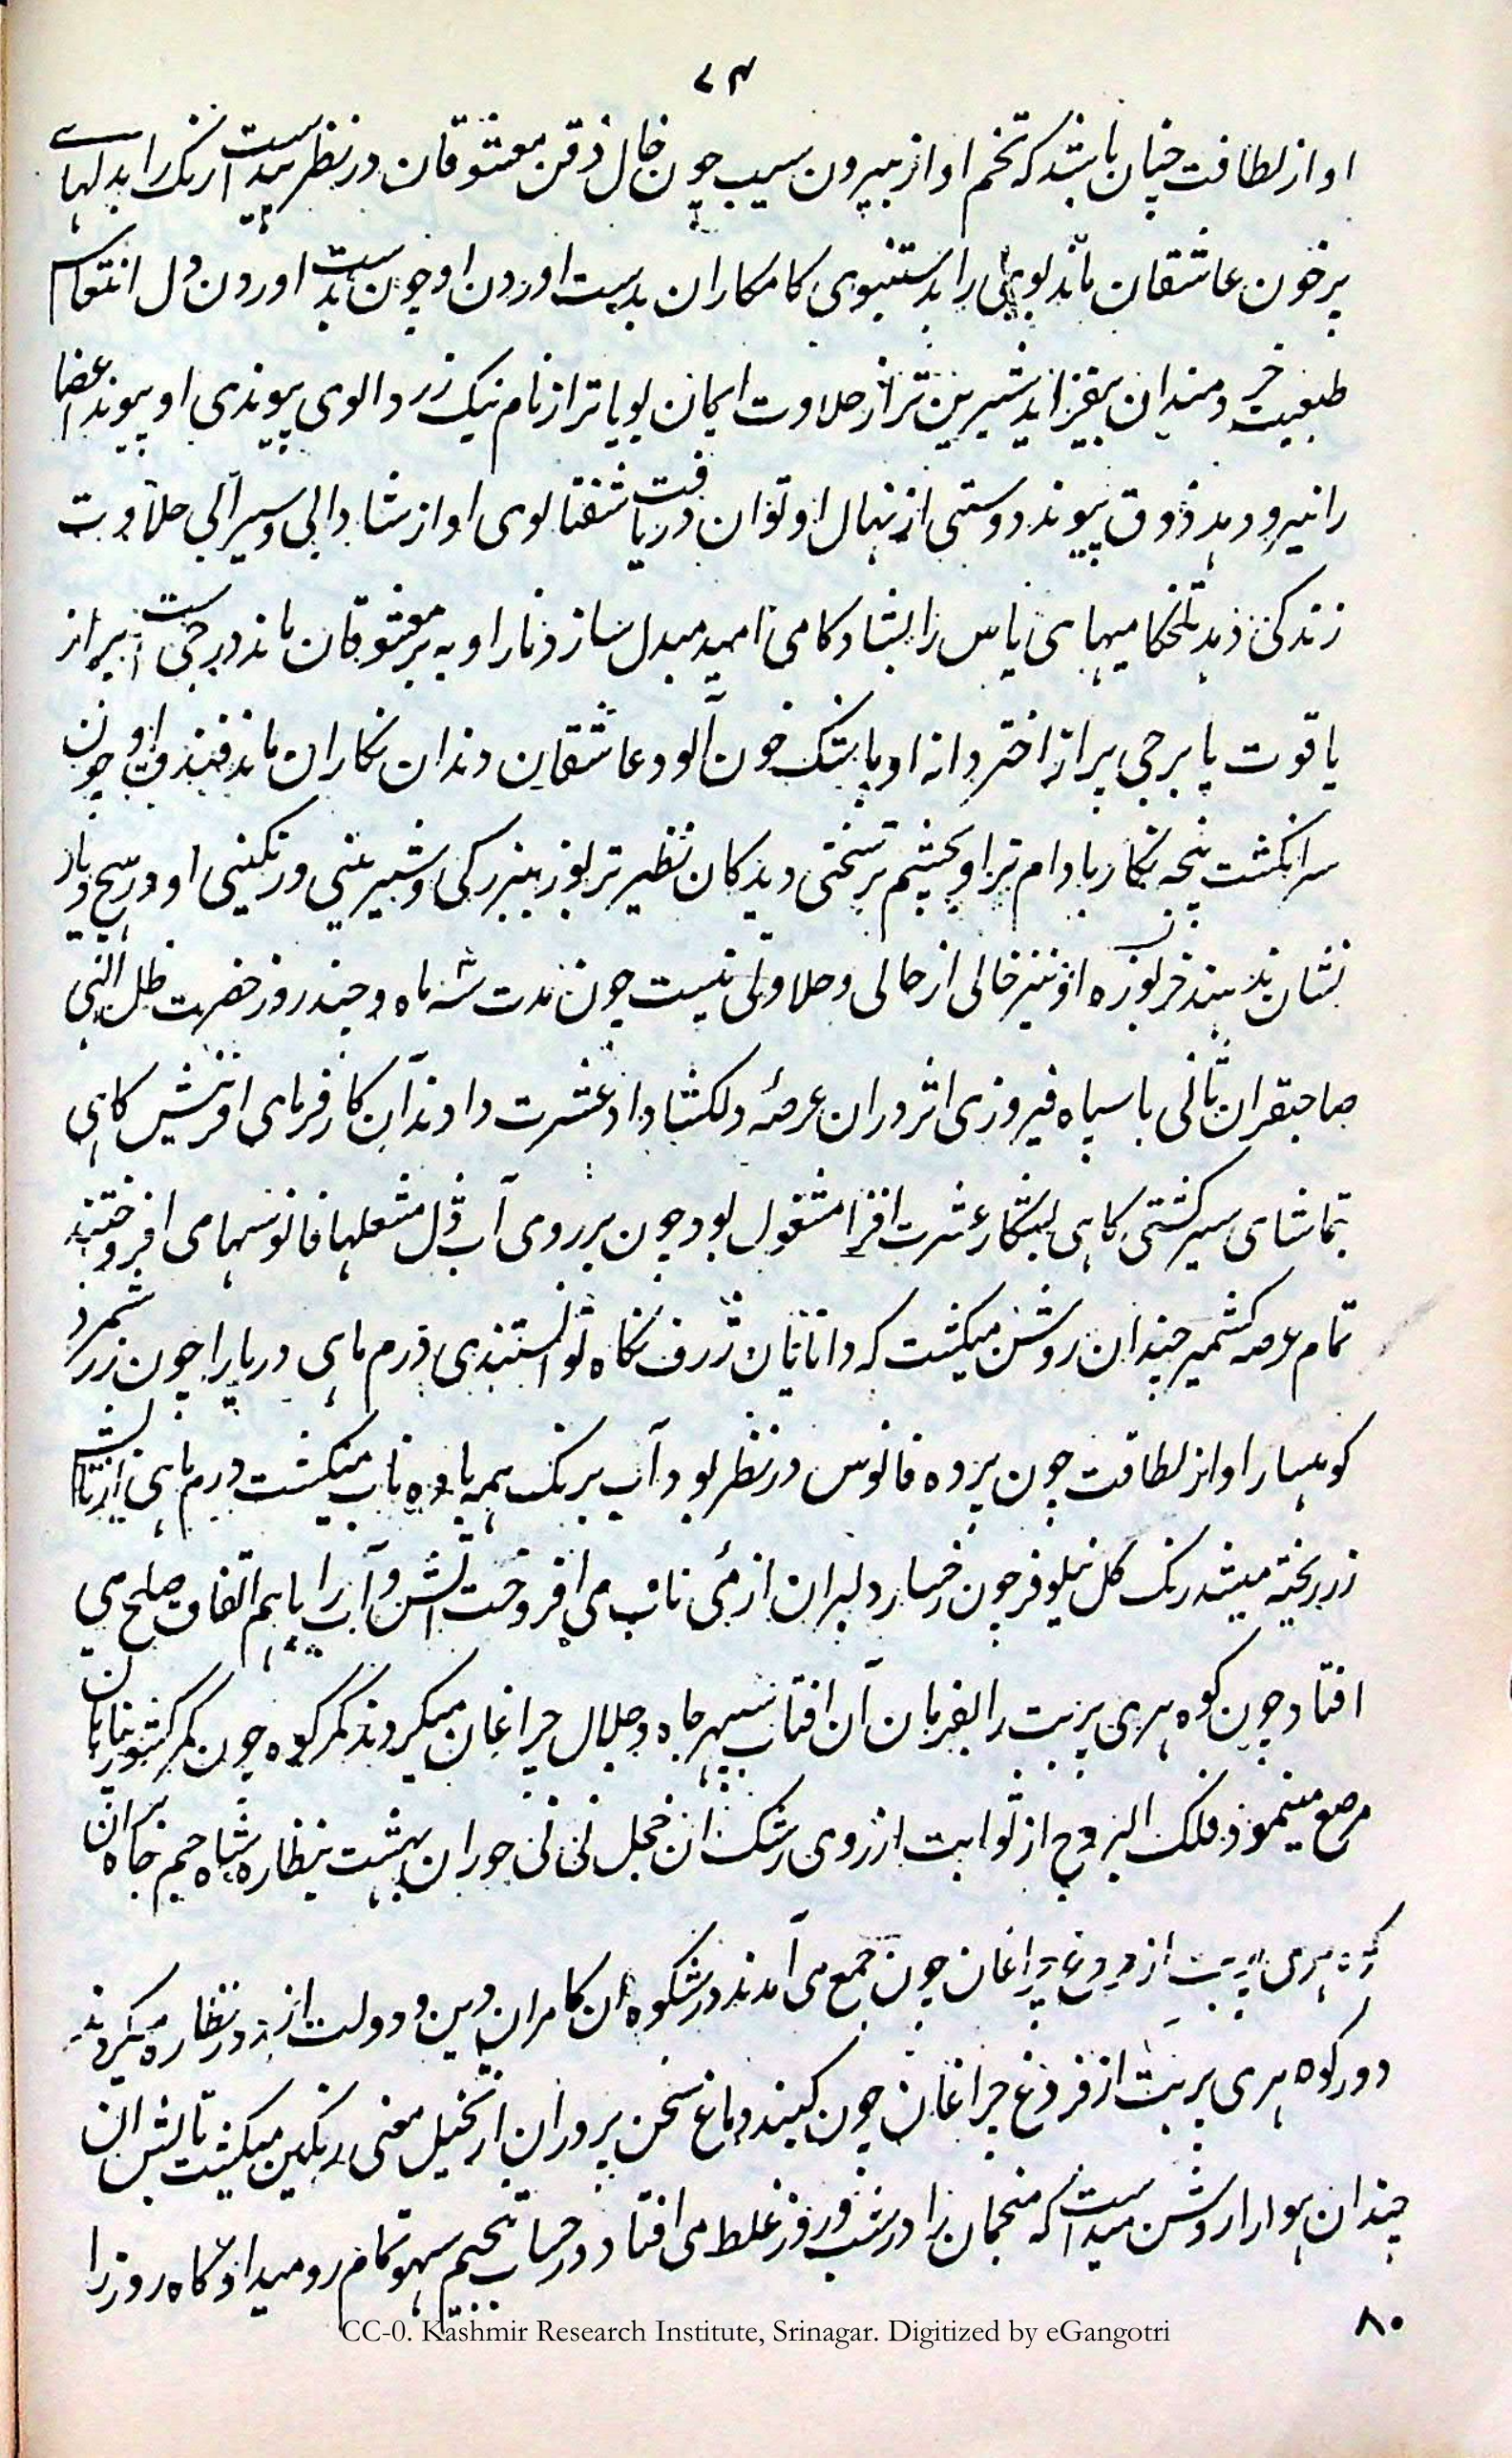 ۷۴
او از لطافت چنان باشد که تخم او از بیرون سیب چون خال ذقن معشوقان در نظر پیداست رنگ را بدلهای
پر خون عاشقان ماند بویی را بدستنبوی کامکاران بدست اوردن او چون بدست اوردن دل انتعاش
طبعیت خردمندان بیفزاید شیرین تر از حلاوت ایمان بویا تر از نام نیک زردالوی پیوندی او پیوند اعضا
را نیرو دهد ذوق پیوند دوستی از نهال او توان دریافت شفتالوی او از شادابی و سیرابی حلاوت
زندگی دهد تلخکامیهای یاس را بشادکامی امید مبدل سازد نار او به بر معشوقان ماند درجی است پر از
یاقوت یا برجی پر از اختر دانه او باشک خون آلود عاشقان دندان نگاران ماند فندق او چون
سر انگشت پنجه نگار بادام تر او بچشم تر سختی دیدگان نظیر تربوز ببزرگی و شیرینی و رنگینی او در هیچ دیار
نشان ندهند خربوزه او نیز خالی از حالی و حلاوتی نیست چون مدت سه ماه و چند روز حضرت ظل الهی
صاحبقران ثانی با سپاه فیروزی اثر دران عرصهٔ دلکشا داد عشرت دادند آن کارفرمای افرینش گاهی
بتماشای سیر کشتی گاهی بشکار عشرت افزا مشغول بود چون بر روی آب ڈل مشعلها فانوسها می افروختند
تمام عرصه کشمیر چندان روشن میگشت که دانایان ژرف نگاه توانستندی درم ماهی دریا را چون زر شمرد
کوهسار او از لطافت چون پرده فانوس در نظر بود آب برنگ همه باده ناب میگشت درم ماهی از تابش
زر ریخته میشد رنگ گل نیلوفر چون رخسار دلبران از مئی ناب می افروخت آتش و آب را باهم اتفاق صلح می
افتاد چون کوه هری پربت را بفرمان آن افتاب سپهر جاه و جلال چراغان میکردند کمر کوه چون کمر کشور ستانان
مرصع مینمود فلک البروج از ثوابت از روی رشک ان خجل نی نی حوران بهشت بنظاره شاه جم جاه بران
کوه هری پربت از فروغ چراغان چون جمع می آمدند در شکوه ان کامران دین و دولت از دور نظاره میکردند
دور کوه هری پربت از فروغ چراغان چون گنبد دماغ سخن پروران از تخیل معنی رنگین میگشت تابش ان
چندان هوا را روشن میداشت که منجمان را در شب و روز غلط می افتاد در حساب تنجیم سهو تمام رو میداد گاه روز را
۸۰
CC-0. Kashmir Research Institute, Srinagar. Digitized by eGangotri